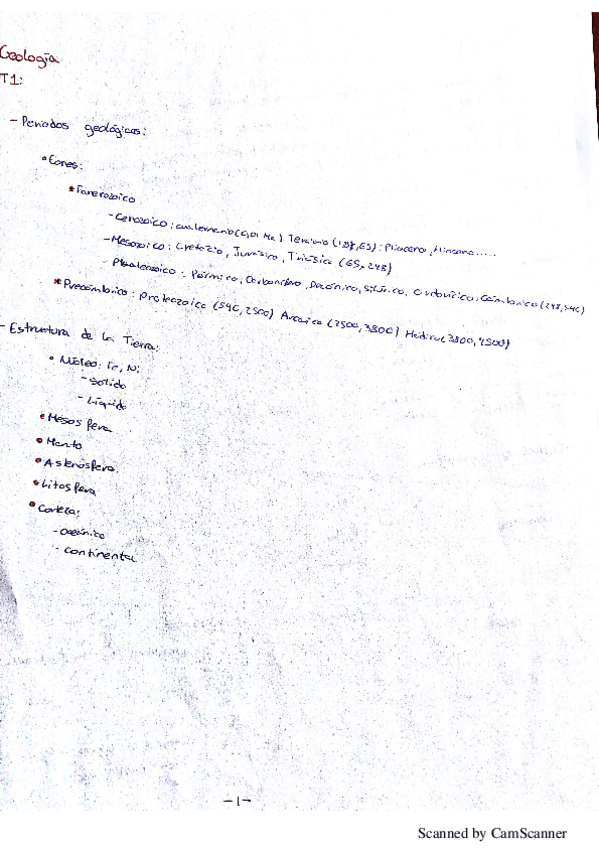 Geología
T1:
- Periodos geológicos:
• Eones:
* Fanerozoico
- Cenozoico: cuaternario (0,01 Ma) Terciario (1,87, 65): Plioceno, Mioceno.....
- Mesozoico: Cretázio, Jurásico, Triásico (65, 248)
- Paleozoico: Pérmico, Carbonífero, Devónico, Silúrico, Ordovícico, Cámbrico (248, 540)
* Precámbrico: Proterozoico (540, 2500) Arcaico (2500, 3800) Hádico (3800, 4500)
- Estructura de la Tierra:
• Núcleo: Fe, Ni
- Solido
- Líquido
• Mesosfera
• Manto
• Astenosfera.
• Litosfera
• Corteza:
- Oceánica
- Continental
-1-
Scanned by CamScanner